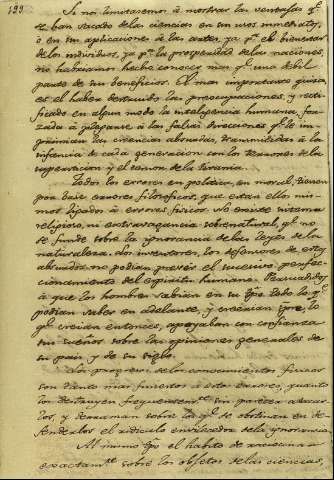 199
Si nos limitaramos à mostrar las ventajas q.e
se han sacado de las ciencias en sus usos immediatos,
ò en sus aplicaciones de las artes, ya p.a el bienestar
de los individuos, ya p.a la prosperidad de las naciones,
no habriamos hecho conocer mas q.e una debil
parte de sus beneficios. El mas importante quiza
es el haber destruido las preocupaciones, y recti
ficado en algun modo la inteligencia humana, for
zada à plegarse à las falsas direcciones q.e le im
primian las creencias absurdas, transmitidas à la
infancia de cada generacion con los terrores de la
supersticion y el temor de la tirania.
Todos los errores en politica, en moral, tienen
por base errores filosoficos, que estan ellos mis
mos ligados à errores fisicos. No existe sistema
religioso, ni extravagancia sobrenatural, q.e no
se funde sobre la ignorancia de las leyes de la
naturaleza. Los inventores, los defensores de estos
absurdos no podian preveer el sucesivo perfec
cionamiento del espiritu humano. Persuadidos
à que los hombres sabian en su tpo. todo lo q.e
podian saber en adelante, y creerian spre. lo
q.e creian entonces, apoyaban con confianza
sus sueños sobre las opiniones generales de
su pais y de su siglo.
Los progresos de los conocimientos fisicos
son tanto mas funestos à estos errores, quanto
los destruyen frequentem.te sin parecer atacar
los, y derraman sobre los q.e se obstinan en de
fenderlos el ridiculo envilecedor de la ignorancia.
Al mismo tpo. el habito de
exactam.te sobre los objetos de las ciencias,